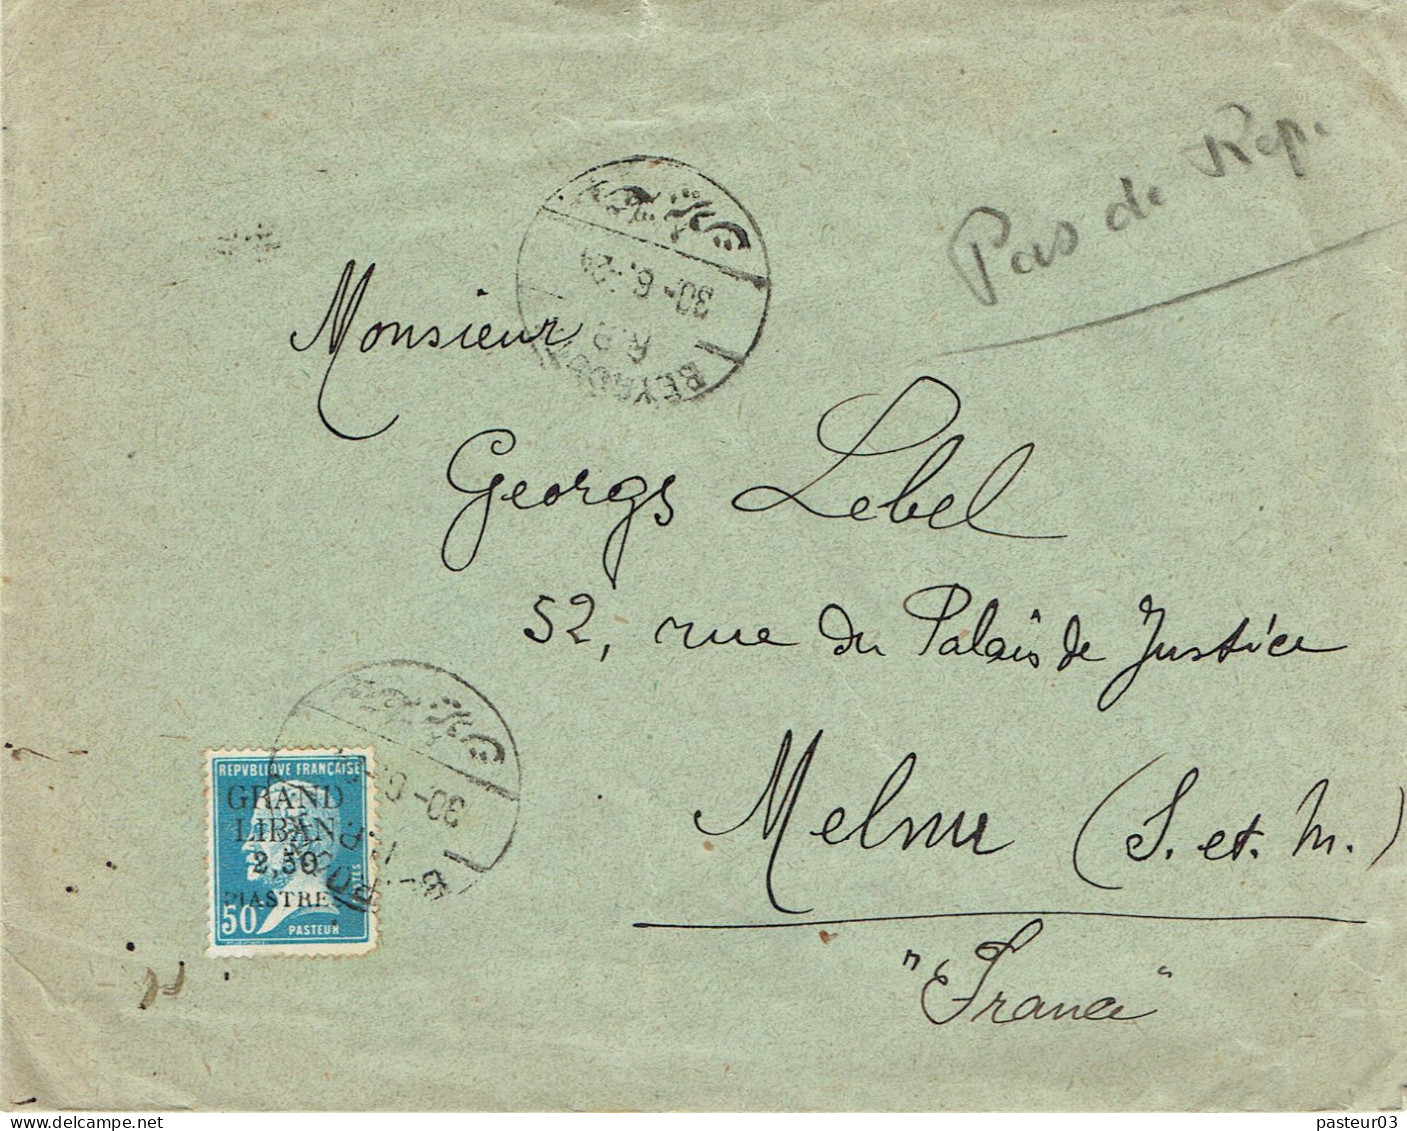 Pas de Rep.
30-6.-24
R.P.
BEYROUTH
Monsieur
Georges Lebel
52, rue du Palais de Justice
Melun (S. et. M.)
"France"
REPVBLIQVE FRANÇAISE
GRAND
LIBAN
2,50
PIASTRES
50
PASTEUR
30-6
delcampe.net
pasteur03